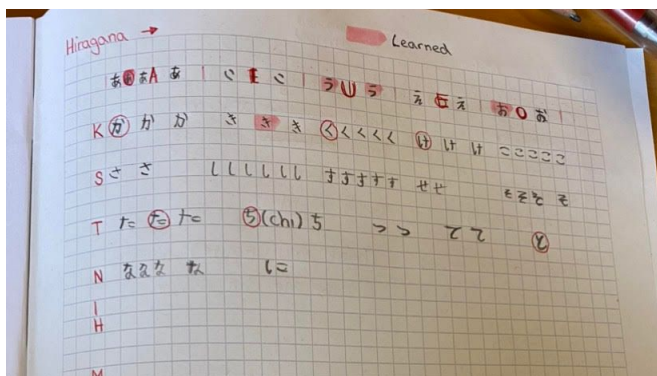 Hiragana → Learned
ああぁA あ | い I い | う U う | え E え お O お |
K か か か き き き くくくくく け け け こここここ
S さ さ しししししし すすすすす せせ そそそ そ
T た た た ち (chi) ち つ つ て て と
N ななな な に
I
H
M